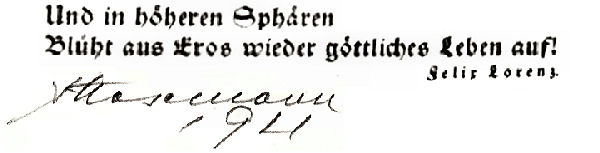 Und in höheren Sphären
Blüht aus Eros wieder göttliches Leben auf!
Felix Lorenz.